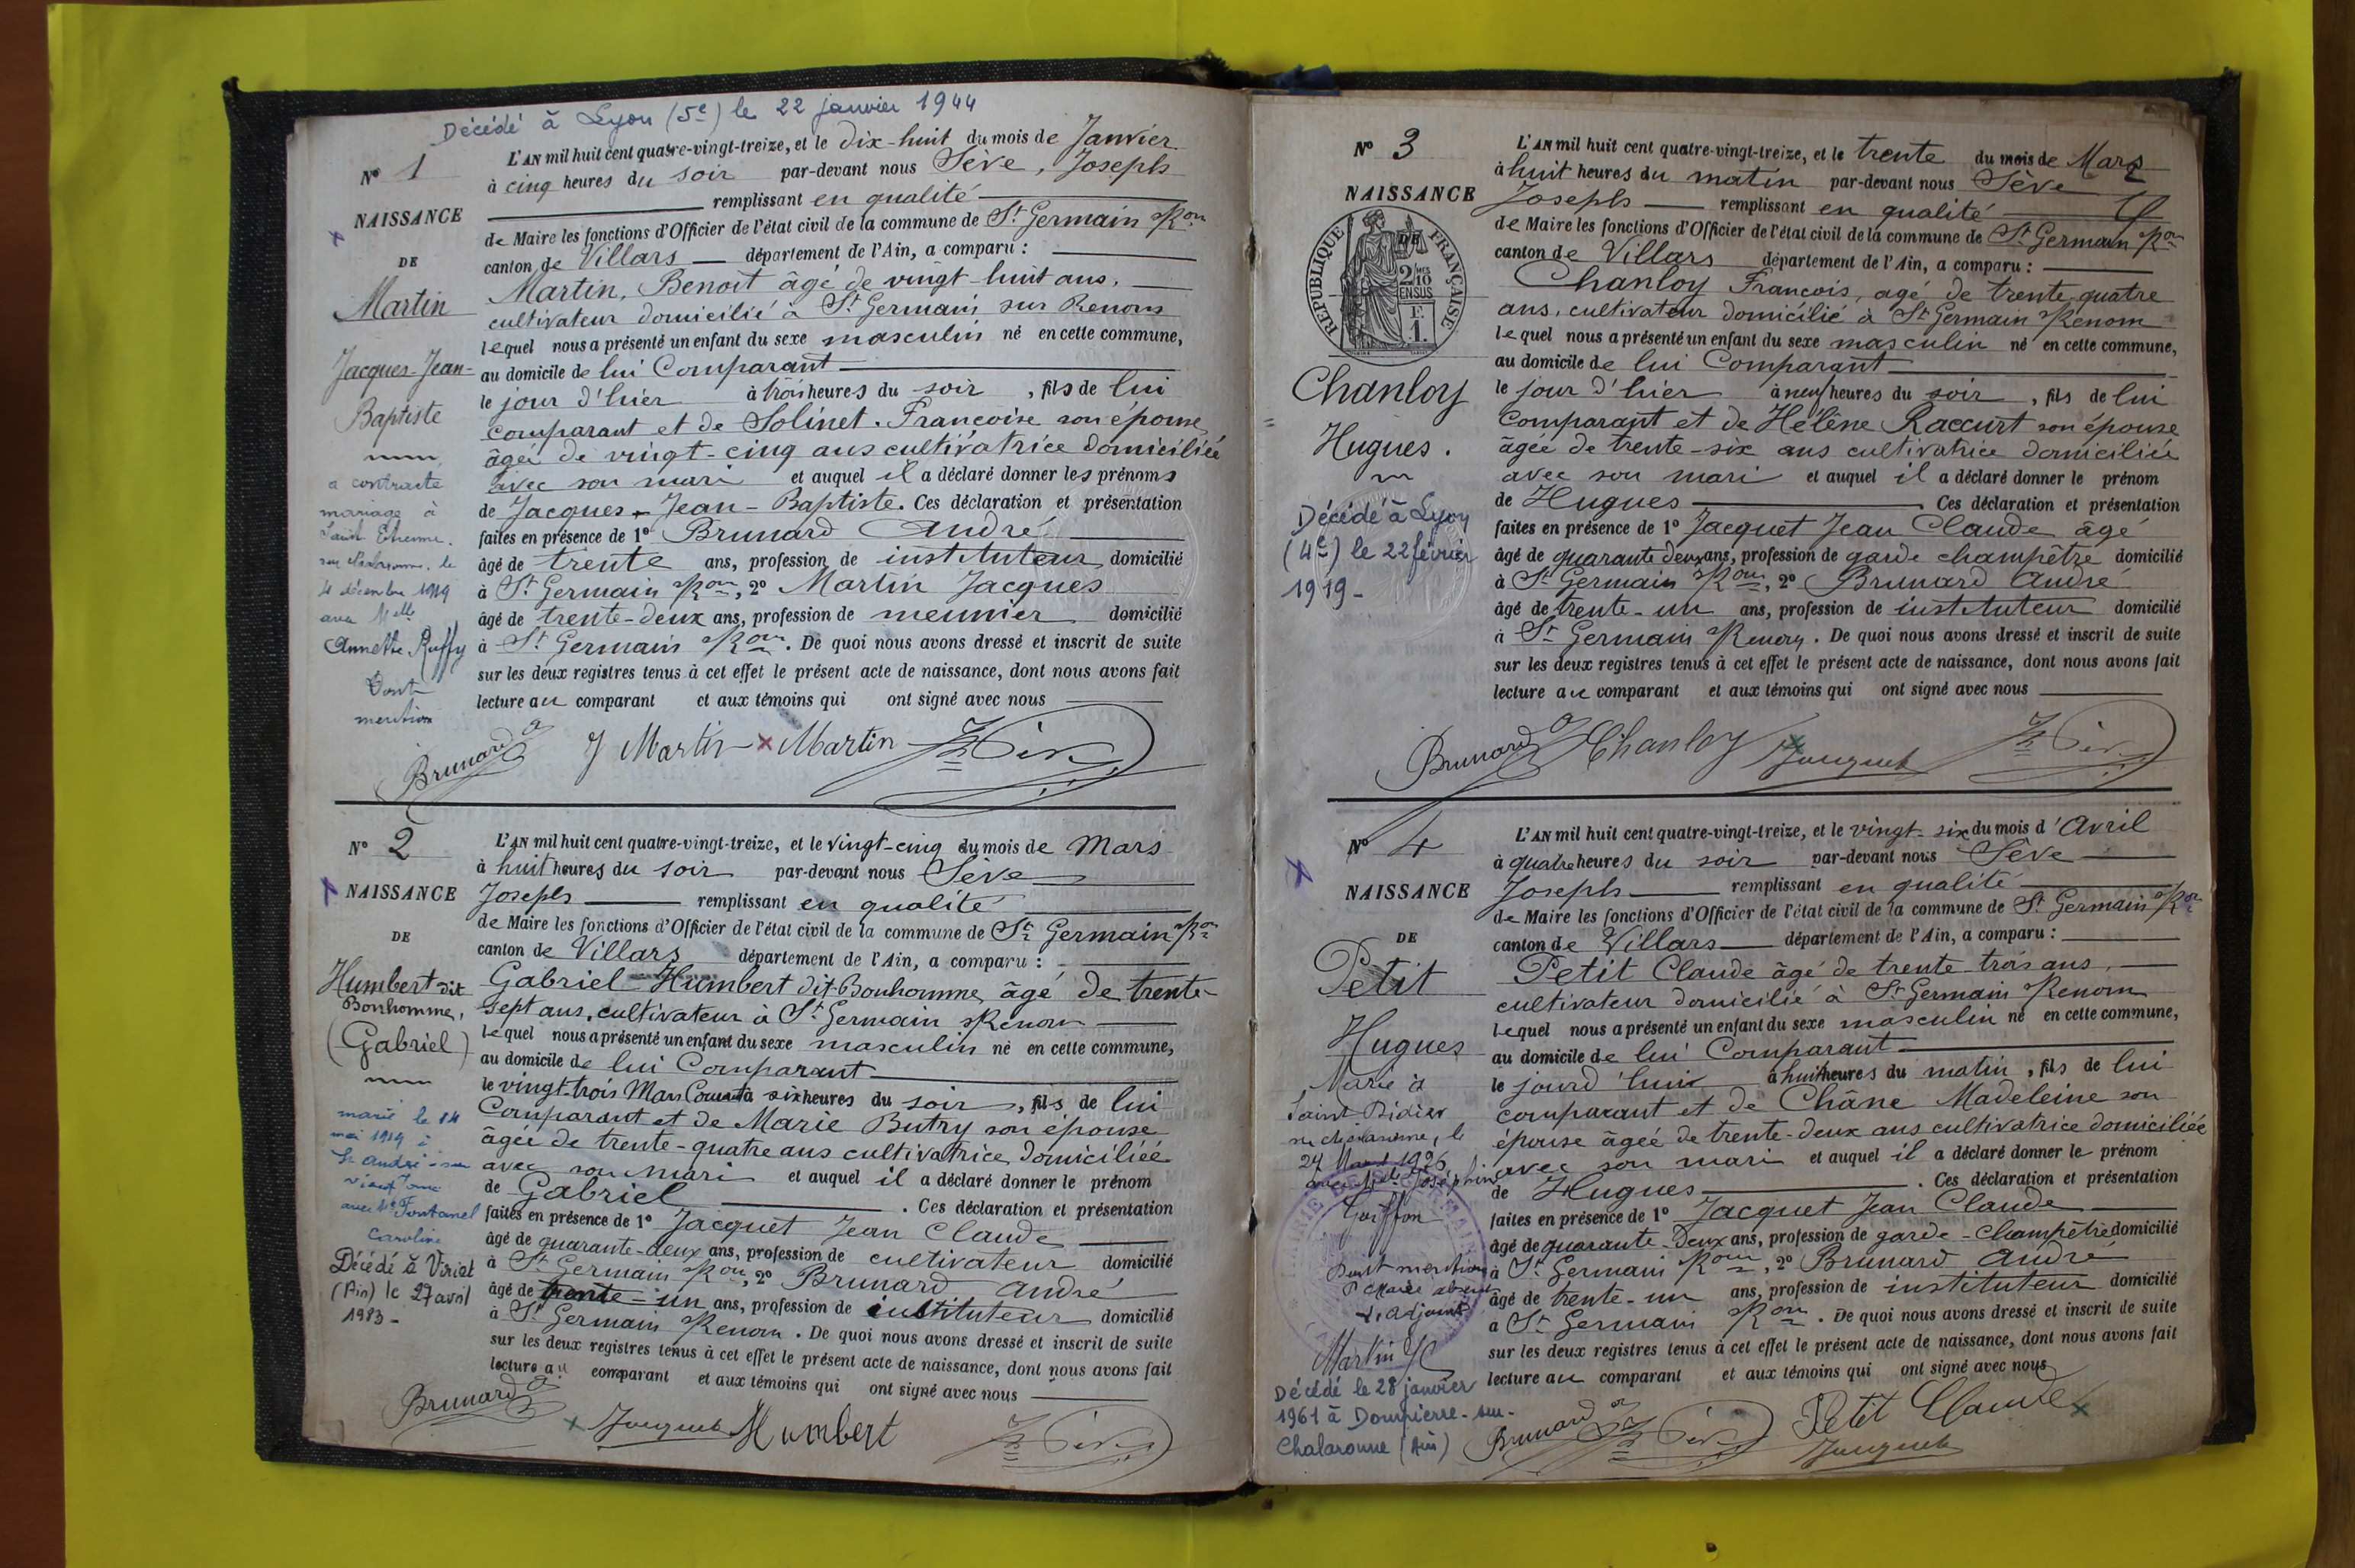 Décédé à Lyon (5e) le 22 janvier 1944
N° 1
NAISSANCE
DE
Martin
Jacques-Jean-
Baptiste
a contracté
mariage à
Saint Etienne
sur Chalaronne, le
4 décembre 1919
avec Melle
Annette Ruffy
Dont
mention
L'AN mil huit cent quatre-vingt-treize, et le dix-huit du mois de Janvier
à cinq heures du soir par-devant nous Sève, Joseph
remplissant en qualité
de Maire les fonctions d'Officier de l'état civil de la commune de St Germain Ron
canton de Villars département de l'Ain, a comparu :
Martin, Benoît âgé de vingt-huit ans,
cultivateur domicilié à St Germain sur Renom
lequel nous a présenté un enfant du sexe masculin né en cette commune,
au domicile de lui Comparant
le jour d'hier à trois heures du soir, fils de lui
comparant et de Solinet. Françoise son épouse
âgée de vingt-cinq ans cultivatrice domiciliée
avec son mari et auquel il a déclaré donner les prénoms
de Jacques-Jean-Baptiste. Ces déclaration et présentation
faites en présence de 1° Brunard André
âgé de trente ans, profession de instituteur domicilié
à St Germain Ron, 2° Martin Jacques
âgé de trente-deux ans, profession de meunier domicilié
à St Germain Ron. De quoi nous avons dressé et inscrit de suite
sur les deux registres tenus à cet effet le présent acte de naissance, dont nous avons fait
lecture au comparant et aux témoins qui ont signé avec nous
Brunard a J Martin x Martin J Sève
N° 2
NAISSANCE
DE
Humbert dit
Bonhomme,
(Gabriel)
marié le 14
mai 1919 à
St André-sur
vieux Jonc
avec Fontanel
Caroline
Décédé à Viriat
(Ain) le 27 avril
1983 -
L'AN mil huit cent quatre-vingt-treize, et le vingt-cinq du mois de Mars
à huit heures du soir par-devant nous Sève
Joseph remplissant en qualité
de Maire les fonctions d'Officier de l'état civil de la commune de St Germain Ron
canton de Villars département de l'Ain, a comparu :
Gabriel Humbert dit-Bonhomme, âgé de trente-
sept ans, cultivateur à St Germain Renom
lequel nous a présenté un enfant du sexe masculin né en cette commune,
au domicile de lui Comparant
le vingt-trois Mars Courant à six heures du soir, fils de lui
Comparant et de Marie Butry son épouse
âgée de trente-quatre ans cultivatrice domiciliée
avec son mari et auquel il a déclaré donner le prénom
de Gabriel. Ces déclaration et présentation
faites en présence de 1° Jacquet Jean Claude
âgé de quarante-deux ans, profession de cultivateur domicilié
à St Germain Ron, 2° Brunard André
âgé de trente-un ans, profession de instituteur domicilié
à St Germain Renom. De quoi nous avons dressé et inscrit de suite
sur les deux registres tenus à cet effet le présent acte de naissance, dont nous avons fait
lecture au comparant et aux témoins qui ont signé avec nous
Brunard a x Jacquet Humbert J Sève
N° 3
NAISSANCE
DE
RÉPUBLIQUE FRANÇAISE
2/10
EN SUS
Chanloy
Hugues.
Décédé à Lyon
(4e) le 22 février
1919-
L'AN mil huit cent quatre-vingt-treize, et le trente du mois de Mars
à huit heures du matin par-devant nous Sève
Joseph remplissant en qualité
de Maire les fonctions d'Officier de l'état civil de la commune de St Germain Ron
canton de Villars département de l'Ain, a comparu :
Chanloy François, agé de trente quatre
ans, cultivateur domicilié à St Germain Renom
lequel nous a présenté un enfant du sexe masculin né en cette commune,
au domicile de lui Comparant
le jour d'hier à neuf heures du soir, fils de lui
Comparant et de Hélène Raccurt son épouse
âgée de trente-six ans cultivatrice domiciliée
avec son mari et auquel il a déclaré donner le prénom
de Hugues. Ces déclaration et présentation
faites en présence de 1° Jacquet Jean Claude âgé
âgé de quarante deux ans, profession de garde champêtre domicilié
à St Germain Ron, 2° Brunard André
âgé de trente-un ans, profession de instituteur domicilié
à St Germain Renom. De quoi nous avons dressé et inscrit de suite
sur les deux registres tenus à cet effet le présent acte de naissance, dont nous avons fait
lecture au comparant et aux témoins qui ont signé avec nous
Brunard a Chanloy x Jacquet J Sève
N° 4
NAISSANCE
DE
Petit
Hugues
Marié à
Saint Didier
sur chalaronne, le
24 1926
avec Melle Joséphine
Goiffon
Dont mention
P. Maire absent
L'adjoint
Martin
Décédé le 28 janvier
1961 à Dompierre-sur-
Chalaronne (Ain)
L'AN mil huit cent quatre-vingt-treize, et le vingt-six du mois d'Avril
à quatre heures du soir par-devant nous Sève
Joseph remplissant en qualité
de Maire les fonctions d'Officier de l'état civil de la commune de St Germain Ron
canton de Villars département de l'Ain, a comparu :
Petit Claude âgé de trente-trois ans,
cultivateur domicilié à St Germain Renom
lequel nous a présenté un enfant du sexe masculin né en cette commune,
au domicile de lui Comparant
le jourd'hui à huit heures du matin, fils de lui
comparant et de Châne Madeleine son
épouse âgée de trente-deux ans cultivatrice domiciliée
avec son mari et auquel il a déclaré donner le prénom
de Hugues. Ces déclaration et présentation
faites en présence de 1° Jacquet Jean Claude
âgé de quarante-deux ans, profession de garde-Champêtre domicilié
à St Germain Ron, 2° Brunard André
âgé de trente-un ans, profession de instituteur domicilié
à St Germain Ron. De quoi nous avons dressé et inscrit de suite
sur les deux registres tenus à cet effet le présent acte de naissance, dont nous avons fait
lecture au comparant et aux témoins qui ont signé avec nous
Brunard a J Sève Petit Claude x
Jacquet